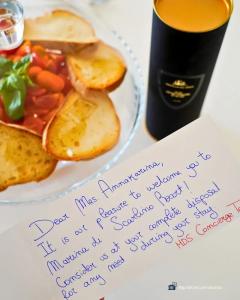 Dear Mrs Annakarina,
It is our pleasure to welcome you to
Marina di Scarlino Resort!
Consider us at your complete disposal
for any need during your stay.
MDS Concierge